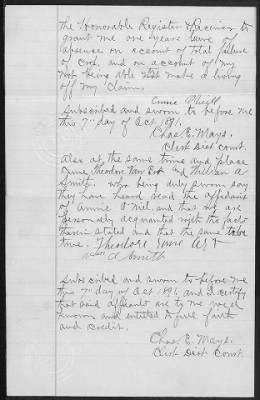 the Honorable Register & Receiver to
grant me one years leave of
absence on account of total failure
of crop, and on account of my
not being able to make a living
off my claim.
Annie O'Neill
Subscribed and sworn to before me
this 7" day of Oct 1891.
Chas. E. Mays.
Clerk Dist Court.
Also at the same time and place
came Theodore and William A
Smith. who being duly sworn say
they have heard read the affidavit
of Annie O'Neil and that they are
personally acquainted with the facts
therein stated and that the same to be
true. Theodore
Wm A Smith
Subscribed and sworn to before me
this 7" day of Oct 1891, and I certify
that said affiants are to me well
known and entitled to full faith
and credit.
Chas. E. Mays.
Clerk Dist Court.